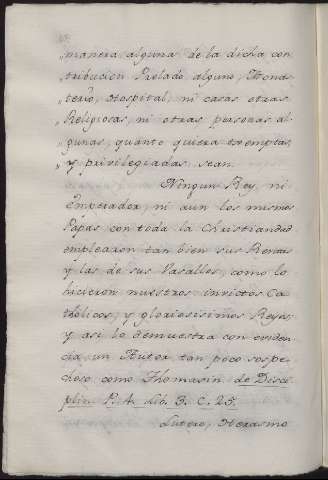 „ manera alguna de la dicha con
„ tribucion Prelado alguno, Monas
„ terio, Hospital, ni casas otras
„ Religiosas, ni otras personas al
„ gunas, quanto quiera exemptas,
„ y privilegiadas sean.
Ningun Rey, ni
Emperador, ni aun los mismos
Papas con toda la Christiandad
emplearon tan bien sus Rentas
y las de sus Vasallos, como lo
hicieron nuestros invictos Ca
tholicos, y gloriosisimos Reyes;
y asi lo demuestra con eviden
cia un Autor tan poco sospe
choso como Thomasin de Disci
plin. P. 4. Lib. 3. C. 25.
Lutero, Herasmo